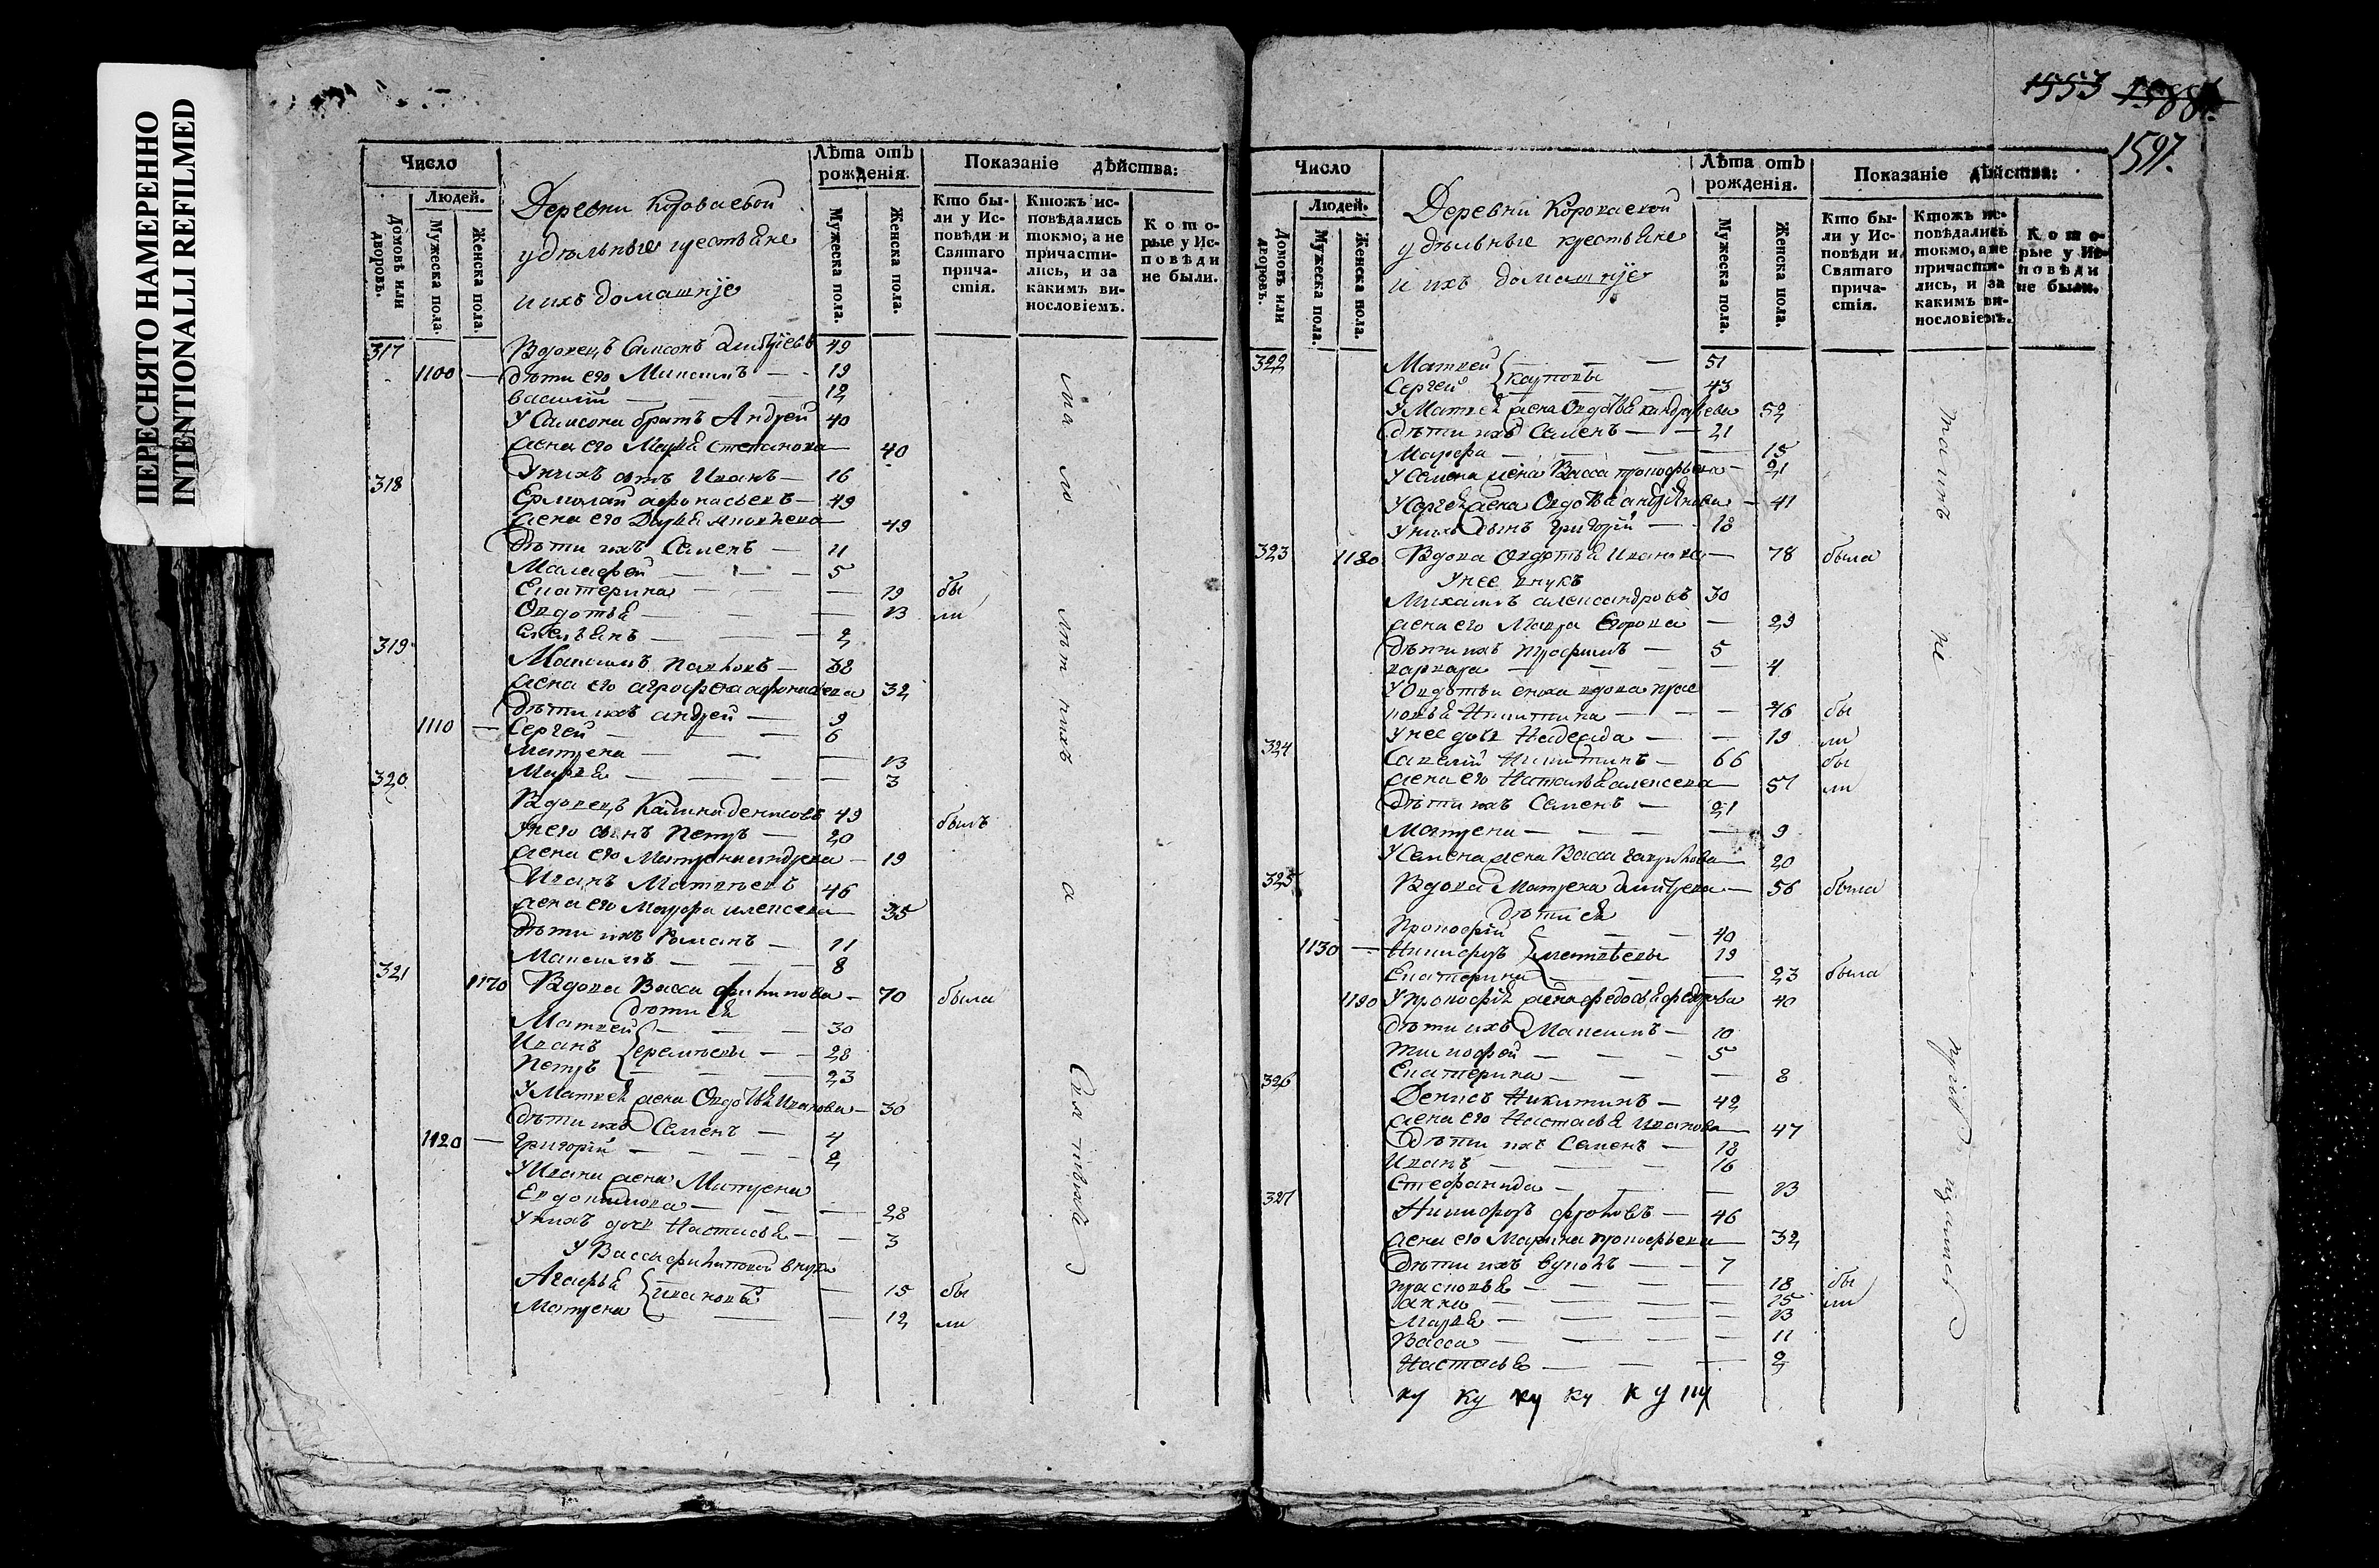 ПЕРЕСНЯТО НАМЕРЕННО
INTENTIONALLI REFILMED
Число
Людей.
Домовъ или дворовъ.
Мужеска пола.
Женска пола.
Деревни Короваевой
удѣльные крестьяне
и ихъ домашніе
Лѣта отъ рожденія.
Мужеска пола.
Женска пола.
Показаніе дѣйства:
Кто бы-
ли у Ис-
повѣди и
Святаго
прича-
стія.
Ктожъ ис-
повѣдались
токмо, а не
причасти-
лись, и за
какимъ ви-
нословіемъ.
Кото-
рые у Ис-
повѣди
не были.
317 Вдовецъ Самсонъ 49
1100 — дѣти его Максимъ — 19
Василій — 12
У Самсона братъ Андрей 40
жена его Марья Степанова 40
У нихъ сынъ Иванъ — 16
318 Ермолай Афонасьевъ — 49
жена его Дарья 49
Дѣти ихъ Семенъ — 11
Малафей — 5
Екатерина — 19 бы
Овдотья — 13 ли
— 2
319 Максимъ Павловъ — 38
жена его Аграфена 32
Дѣти ихъ Андрей — 9
1110 — Сергей — 6
Матрена — 13
Марья — 3
320 Вдовецъ Калина Денисовъ 49 былъ
У него сынъ Петръ — 20
жена его Матрена Андреева — 19
Иванъ Матвѣевъ 46
жена его Мавра Алексеева 35
Дѣти ихъ Романъ — 11
Максимъ — 8
321 1170 Вдова Васса Филипова — 70 была
дѣти ея
Матвей — 30
Иванъ — 28
Петръ — 23
У Матвея жена Овдотья Иванова — 30
Дѣти ихъ Семенъ — 4
1120 — Григорій — 2
У Ивана жена Матрена
Евдокимова — 28
У нихъ дочь Настасья — 3
У Вассы Филиповой внуки
Агафья Ивановы 15 бы
Матрена 12 ли
1553 1588
1597.
Число
Людей.
Домовъ или дворовъ.
Мужеска пола.
Женска пола.
Деревни Короваевой
удѣльные крестьяне
и ихъ домашніе
Лѣта отъ рожденія.
Мужеска пола.
Женска пола.
Показаніе дѣйства:
Кто бы-
ли у Ис-
повѣди и
Святаго
прича-
стія.
Ктожъ ис-
повѣдались
токмо, а не
причасти-
лись, и за
какимъ ви-
нословіемъ.
Кото-
рые у Ис-
повѣди
не были.
322 Матвей — 51
Сергей Карповы 43
У Матвея жена Овдотья 52
Дѣти ихъ Семенъ — 21
Марфа — 15
У Семена жена Васса Прокофьева — 21
У Сергея жена Овдотья Андріянова — 41
У нихъ сынъ Григорій — 18
323 1180 Вдова Овдотья Иванова — 78 была
У нее внукъ
Михаилъ Александровъ 30
жена его Мавра Егорова — 29
Дѣти ихъ Трофимъ — 5
Варвара — 4
У Овдотьи сноха вдова Прас
ковья Никитина — 46 бы
У нее дочь Надежда — 19 ли
324 Савелій Никитинъ — 66 бы
жена его Наталья Алексеева 57 ли
Дѣти ихъ Семенъ — 21
Матрена — 9
У Семена жена Васса 20
325 Вдова Матрена Дмитрева — 56 была
дѣти ея
Прокофій — 40
1130 — Никифоръ Матвѣевы 19
Екатерина — 23 была
1190 У Прокофія жена Федосья Федорова 40
Дѣти ихъ Максимъ — 10
Тимофей — 5
Екатерина — 8
326 Денисъ Никитинъ — 42
жена его Настасья Иванова 47
Дѣти ихъ Семенъ — 18
Иванъ — 16
Стефанида — 13
327 Никифоръ Фроловъ — 46
жена его Марина Прокофьева 32
Дѣти ихъ — 7
Прасковья — 18 бы
Анна — 15 ли
Марья — 13
Васса — 11
Настасья — 2
ку ку ку ку к у